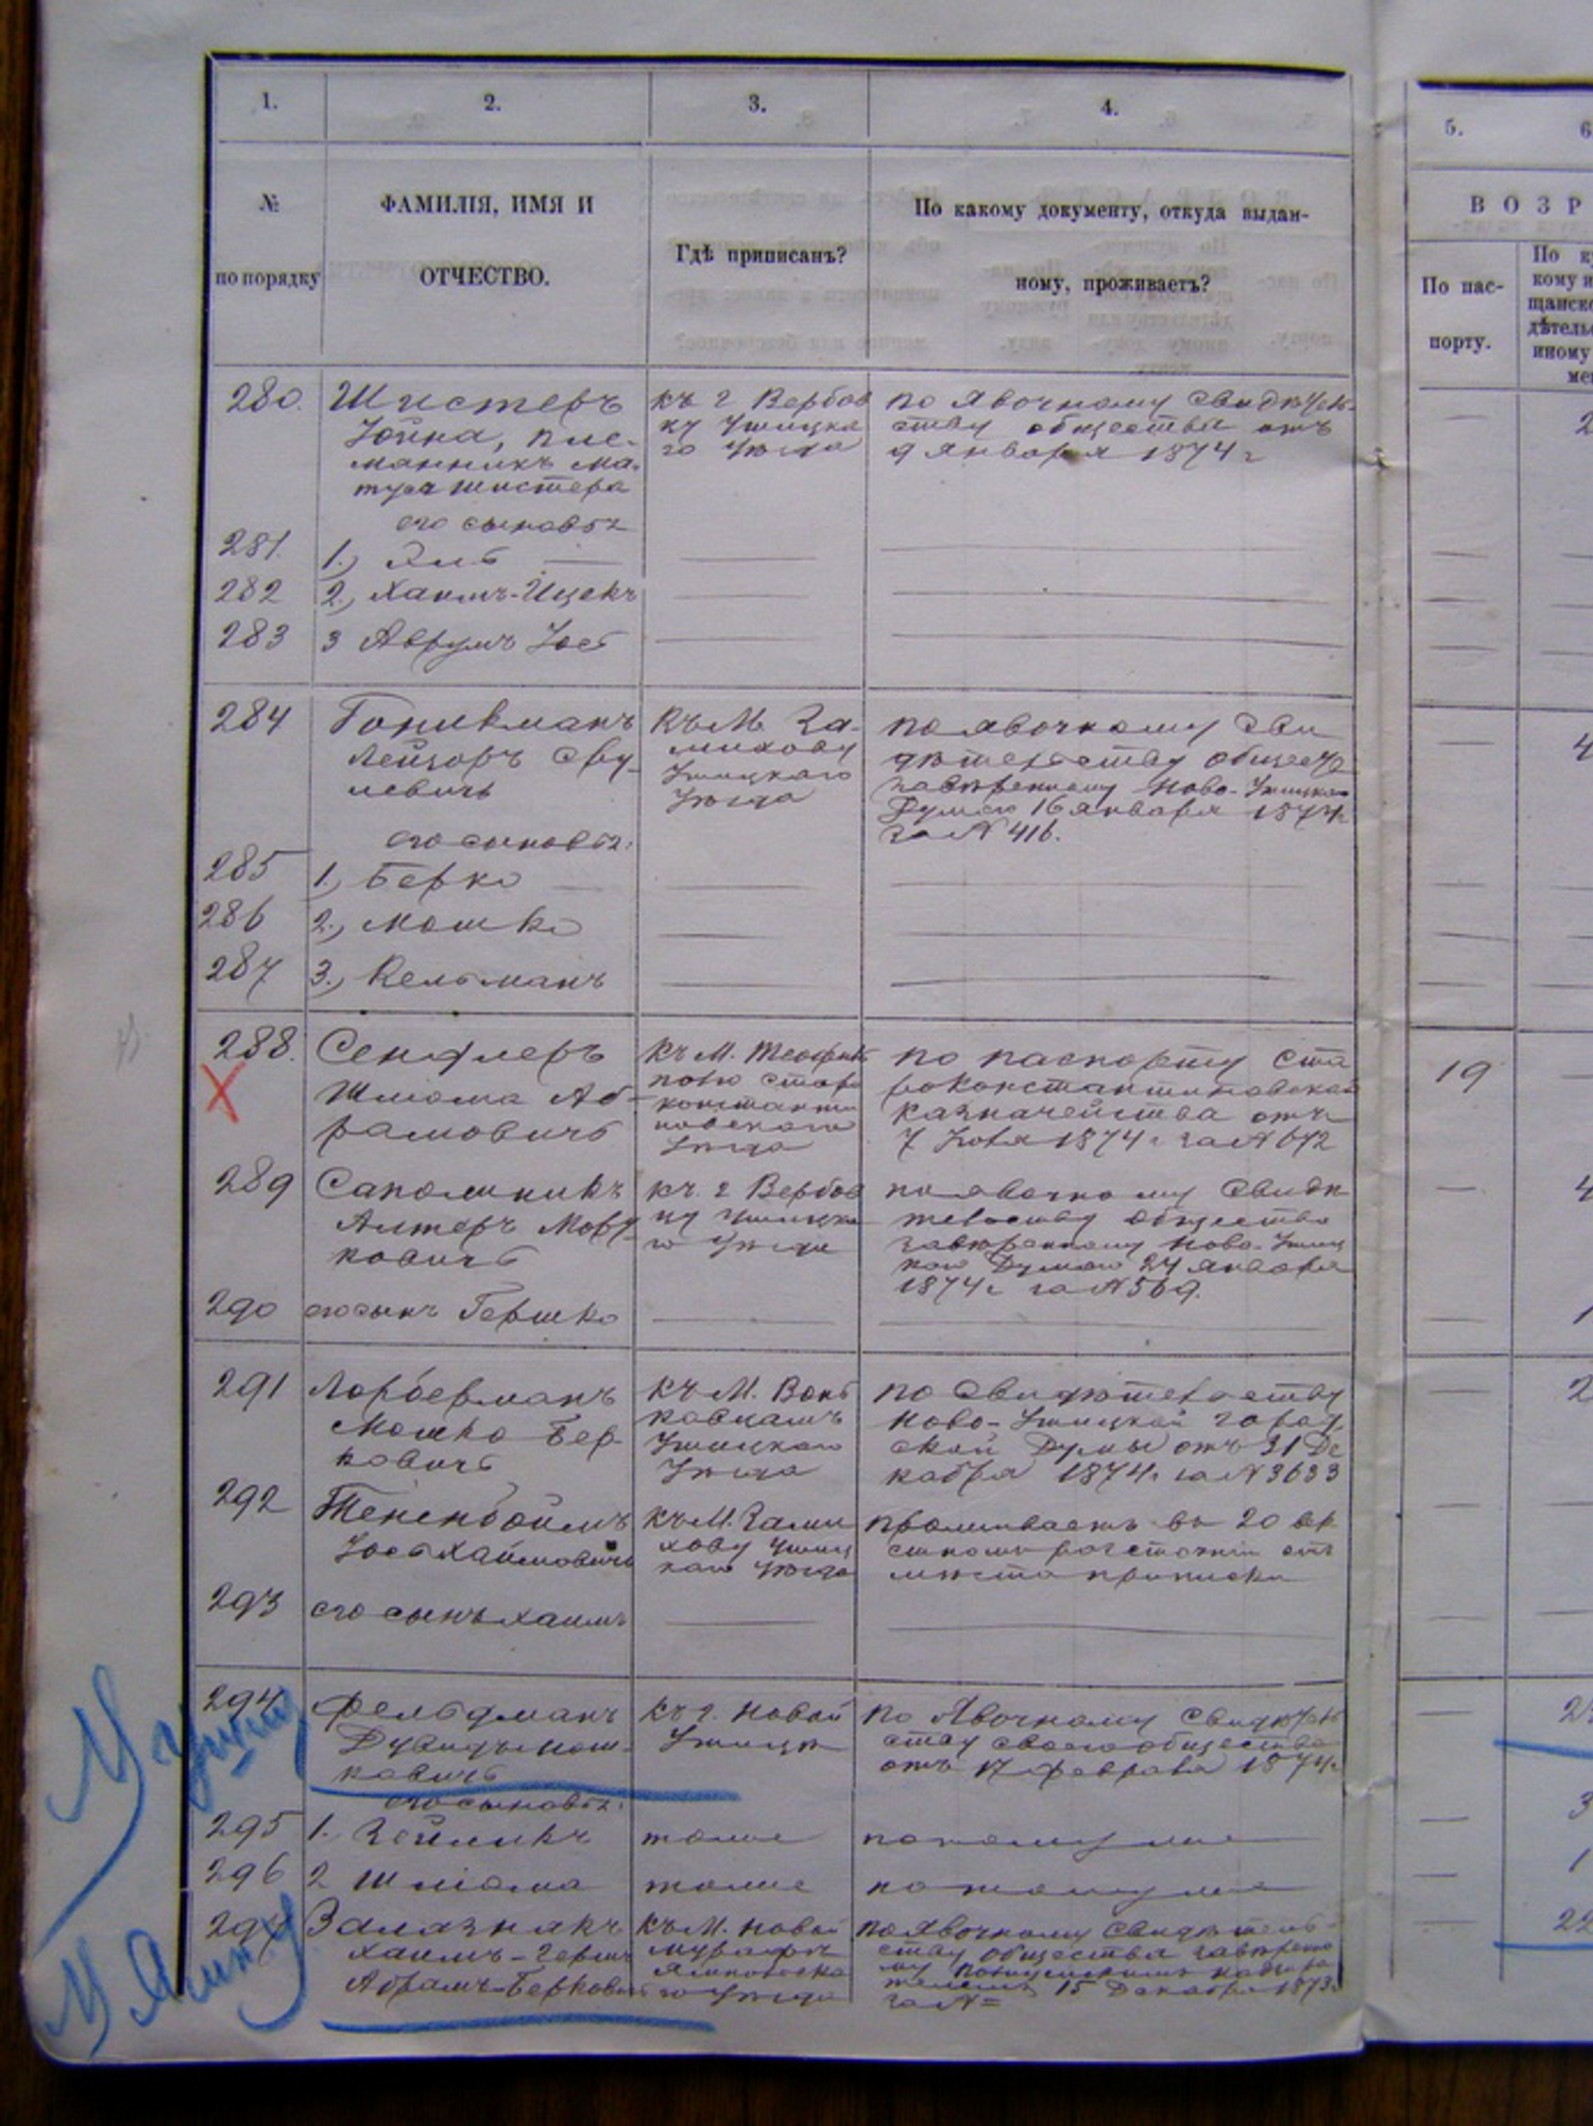 1.
2.
3.
4.
5.
№
по порядку
ФАМИЛІЯ, ИМЯ И
ОТЧЕСТВО.
Гдѣ приписанъ?
По какому документу, откуда выдан-
ному, проживаетъ?
ВОЗР
По пас-
порту.
280. Шистеръ
Іойна, пле-
мянникъ Ма-
туса Шистера
къ г Вербов
цу Ушицка
го Уѣзда
по явочному свидѣтель-
ству общества отъ
9 Января 1874 г
его сыновья
281. 1.,
282 2., Хаимъ-Ицекъ
283 3 Аврумъ Іось
284 Гопикманъ
Лейзоръ Сру-
левичъ
Къ М. За-
михову
Ушицкаго
Уѣзда
по явочному сви
дѣтельству общества
завѣренному Ново-Ушицкою
Думою 16 Января 1874 г
за № 416.
его сыновья:
285 1., Берко
286 2., Мошко
287 3., Кельманъ
288. Сендлеръ
Шлиома Аб-
рамовичъ
Къ М. Теофи
полю Старо
константи
новскаго
Уѣзда
по паспорту Ста
роконстантиновскаго
казначейства отъ
7 1874 г за № 672
19
289 Сапожникъ
Алтеръ Морд-
ковичъ
къ г Вербов
цу Ушицка
го Уѣзда
по явочному свидѣ
тельству общества
завѣренному Ново-Ушиц
кою Думою 24 Января
1874 г за № 569.
290 его сынъ Гершко
291 Лорберманъ
Мошко Бер-
ковичъ
къ М.
Ушицкаго
Уѣзда
по свидѣтельству
Ново-Ушицкой город
ской Думы отъ 31 Де
кабря 1874 г за № 3633
292 Тененбоймъ
Іось Хаймовичъ
къ М. Зами
хову Ушиц
каго Уѣзда
проживаетъ въ 20 вер
стномъ разстояніи отъ
мѣста приписки
293 его сынъ Хаимъ
294 Фельдманъ
Дувидъ Мош-
ковичъ
къ г. Новой
Ушицѣ
по Явочному свидѣтель
ству своего общества
отъ 17 февраля 1874 г
его сыновья:
295 1. Зейликъ тоже по тому же
296 2 Шлиома тоже по тому же
297 Залазнякъ
Хаимъ-Герш
Абрамъ-Берковичъ
къ М. Новой
Мурафѣ
Ямпольска
го Уѣзда
по явочному свидѣтель-
ству общества завѣренно
му
15 Декабря 1873 г
за №=